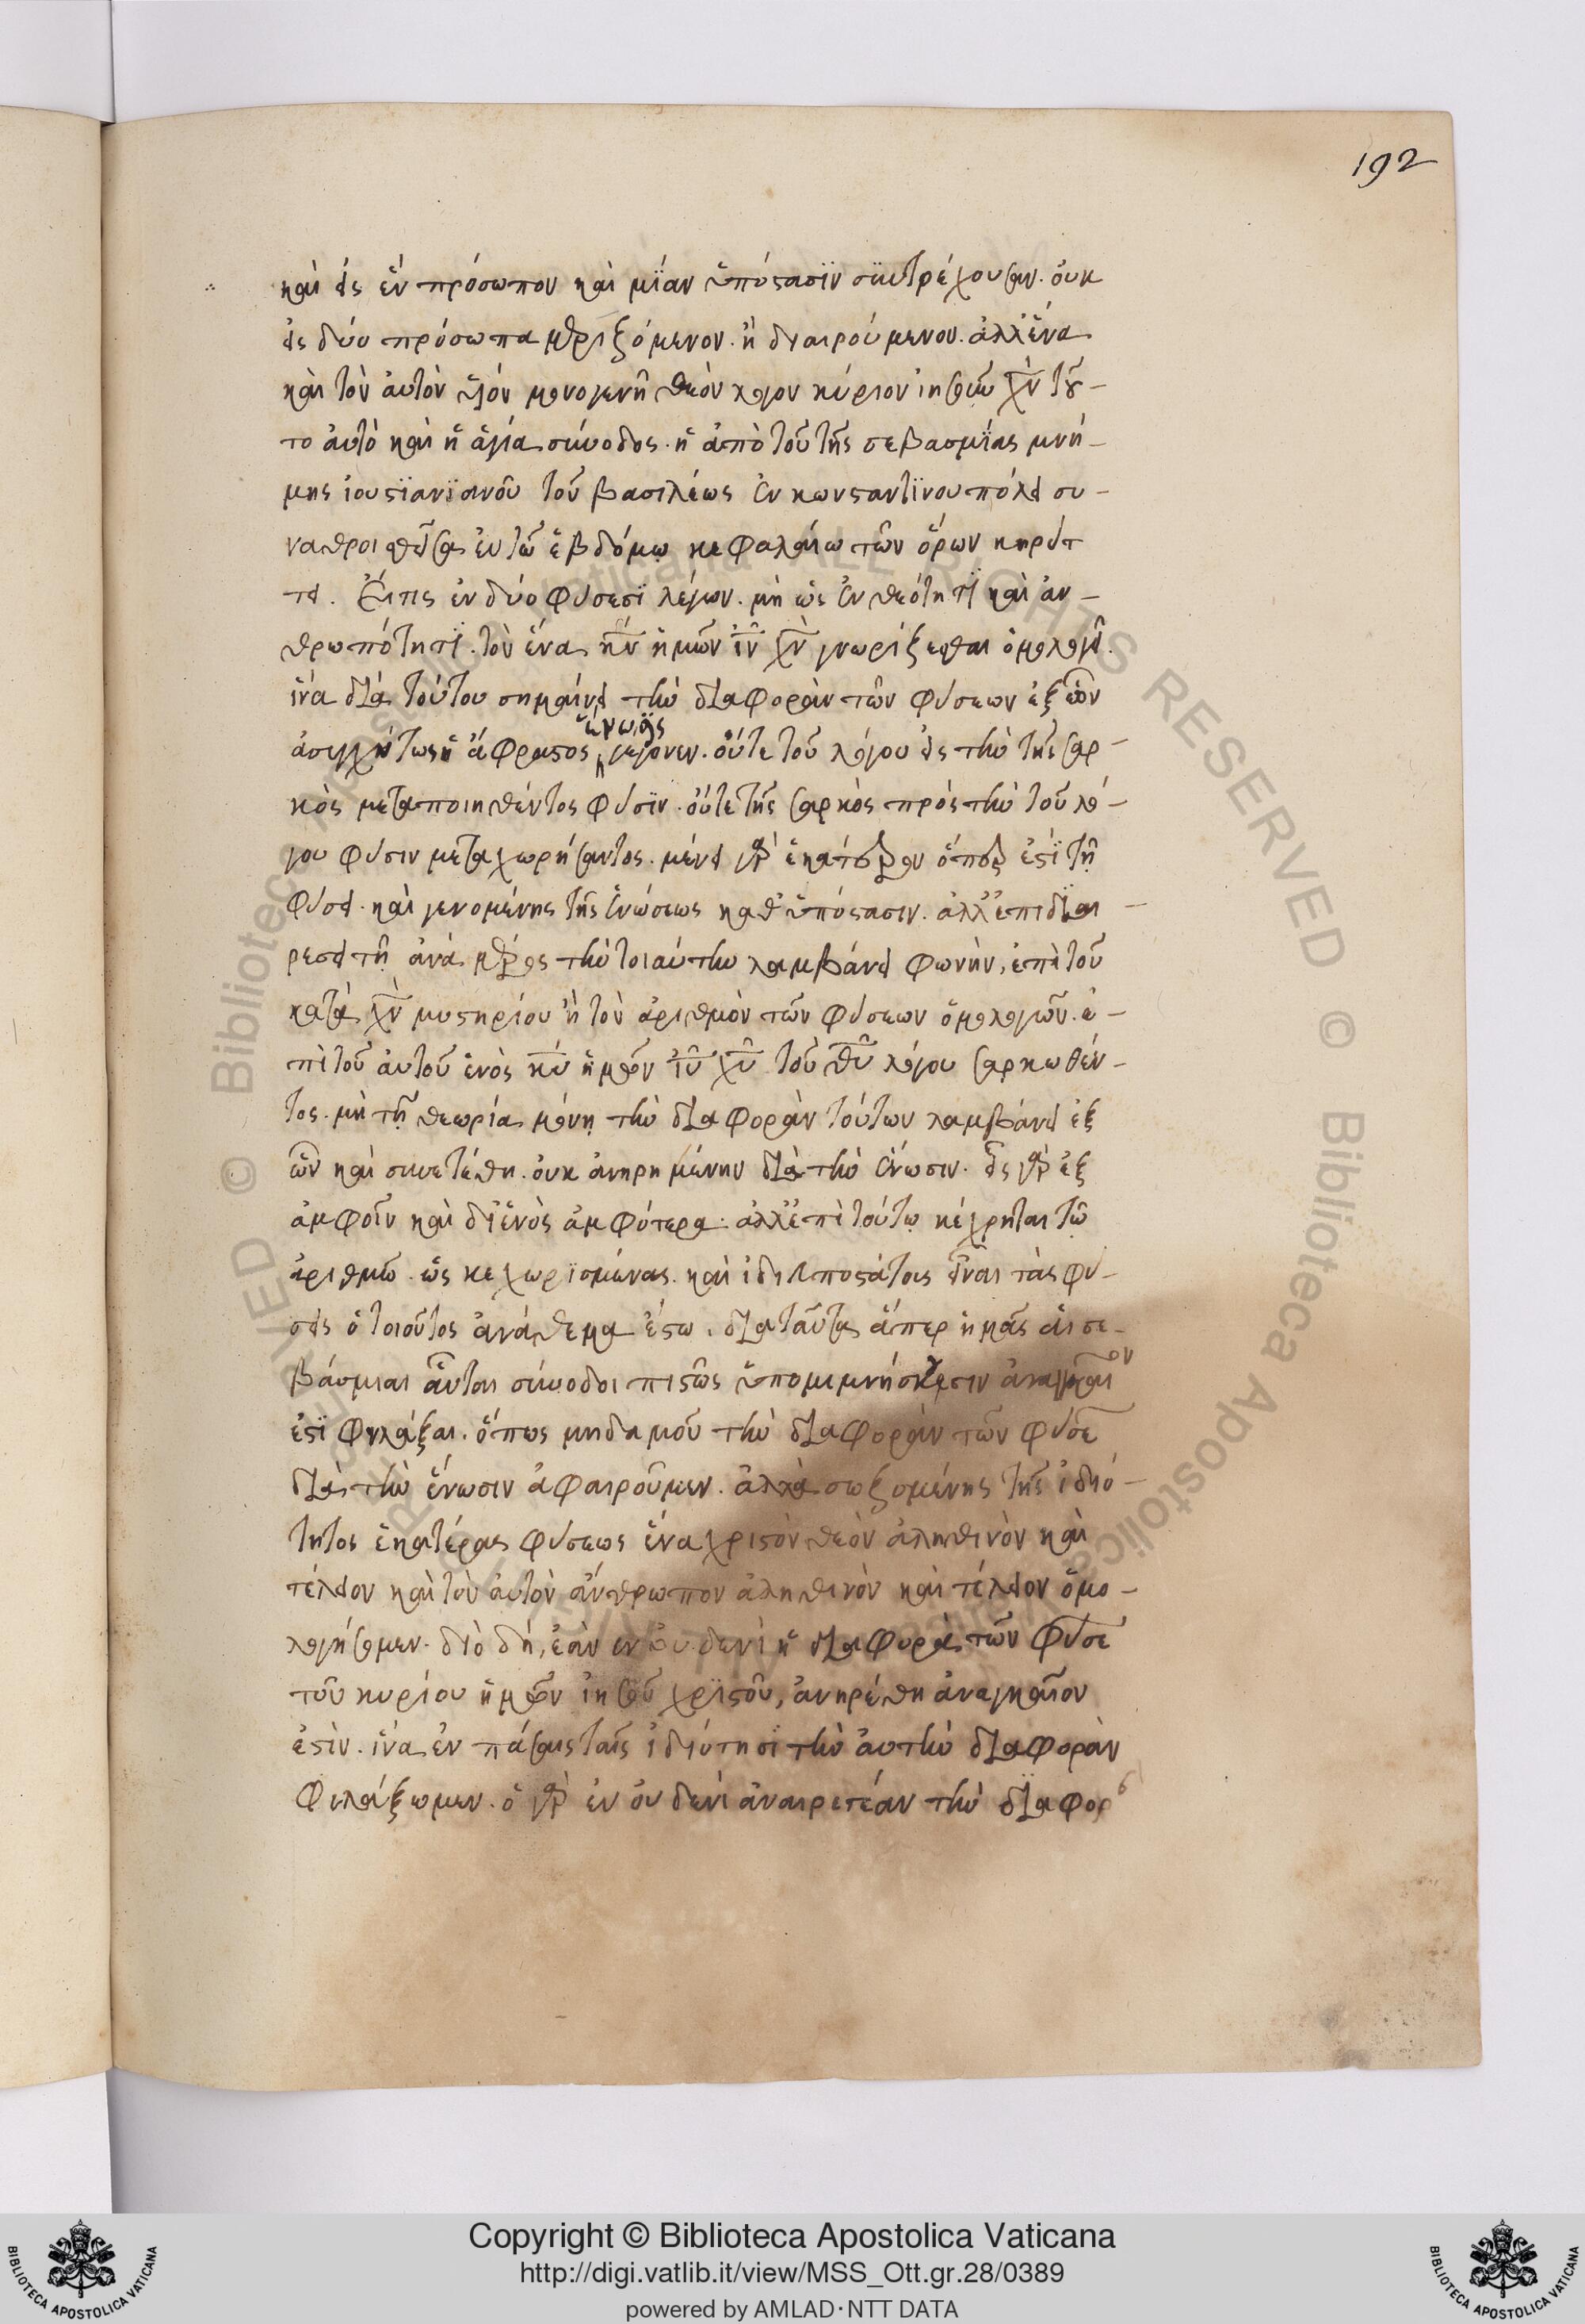 192
καὶ εἰς ἕν πρόσωπον καὶ μίαν ὑπόστασϊν σϋντρέχουσαν. οὐκ
εἰς δύο πρόσωπα μεριζόμενον. ἢ διαιρούμενον. ἀλλ' ἕνα
καὶ τὸν ἀυτὸν υἱόν μονογενῆ θεὸν λόγον κύριον ἰησοῦν χν τοῦ-
το ἀυτὸ καὶ ἡ ἁγία σύνοδος. ἡ ἀπὸ τοῦ τῆς σεβασμΐας μνή-
μης ἰουστϊανϊανοῦ τοῦ βασιλέως ἐν κωνσταντϊνουπόλει συ-
ναθροισθεῖσα ἐν τῶ ἑβδόμῳ κεφαλαίω τῶν ὅρων κηρύτ
τει. Εἴ τις ἐν δύο φύσεσϊ λέγων. μὴ ὡς ἐν θεότητϊ καὶ ἀν-
θρωπότητϊ. τὸν ἕνα κν ἡμῶν ιν χν γνωρίζεσθαι ὁμολογεῖ.
ἵνα διὰ τούτου σημαίνει τὴν διαφορὰν τῶν φύσεων ἐξ ὧν
ἀσυγχύτως ἡ ἄφραστος ἕνωσις γέγονεν. οὔτε τοῦ λόγου εἰς τὴν τῆς σαρ-
κὸς μεταποιηθέντος φύσϊν. οὔτε τῆς σαρκὸς πρὸς τὴν τοῦ λό-
γου φύσιν μεταχωρήσαντος. μένει γὰρ ἑκάτερον ὅπερ ἐστϊ τῇ
φύσει. καὶ γενομένης τῆς ἑνώσεως καθ' ὑπόστασιν. ἀλλ' ἐπι διαι-
ρεσει τῇ ἀνὰ μέρος τὴν τοιαύτην λαμβάνει φωνὴν, ἐπὶ τοῦ
κατὰ χν μυστηρίου ἢ τὸν ἀριθμὸν τῶν φύσεων ὁμολογῶν. ἐ-
πὶ τοῦ ἀυτοῦ ἑνὸς κυ ἡμῶν ιυ χυ τοῦ θυ λόγου σαρκωθέν-
τος. μὴ τῇ θεωρία μόνῃ τὴν διαφορὰν τούτων λαμβάνει ἐξ
ὧν καὶ συνετέθη. οὐκ ἀνηρημένην διὰ τὴν ἕνωσιν. εἷς γὰρ ἐξ
ἀμφοῖν καὶ δι' ἑνὸς ἀμφότερα. ἀλλ' ἐπὶ τούτῳ κέχρηται τῶ
ἀριθμῶ. ὡς κεχωρϊσμένας. καὶ ἰδιυποστάτοις εἶναι τὰς φύ-
σεις ὁ τοιοῦτος ἀνάθεμα ἔστω. διαταῦτα ἅπερ ἡμᾶς ἁι σε-
βάσμιαι ἅυται σύνοδοι πιστῶς ὑπομιμνήσκουσιν ἀναγκαῖον
ἐστϊ φυλάξαι. ὅπως μηδαμοῦ τὴν διαφορὰν τῶν φύσε
διὰ τὴν ἕνωσιν ἀφαιροῦμεν. ἀλλὰ σωζομένης τῆς ἰδιό-
τητος ἑκατέρας φύσεως ἕνα χριστὸν θεὸν ἀληθινὸν καὶ
τέλειον καὶ τὸν ἀυτὸν ἄνθρωπον ἀληθινὸν καὶ τέλειον ὁμο-
λογήσομεν. διὸ δή, ἐὰν ἐν ὀυδενὶ ἡ διαφορὰ τῶν φύσε
τοῦ κυρίου ἡμῶν ἰησοῦ χρϊστοῦ, ἀνηρέθη ἀναγκαῖον
ἐστὶν. ἵνα ἐν πάσαις ταῖς ἰδιότησϊ τὴν ἀυτὴν διαφορὰν
φυλάξωμεν. ὁ γὰρ ἐν ὀυδενὶ ἀναιρετέαν τὴν διαφορ
Copyright © Biblioteca Apostolica Vaticana
http://digi.vatlib.it/view/MSS_Ott.gr.28/0389
powered by AMLAD·NTT DATA